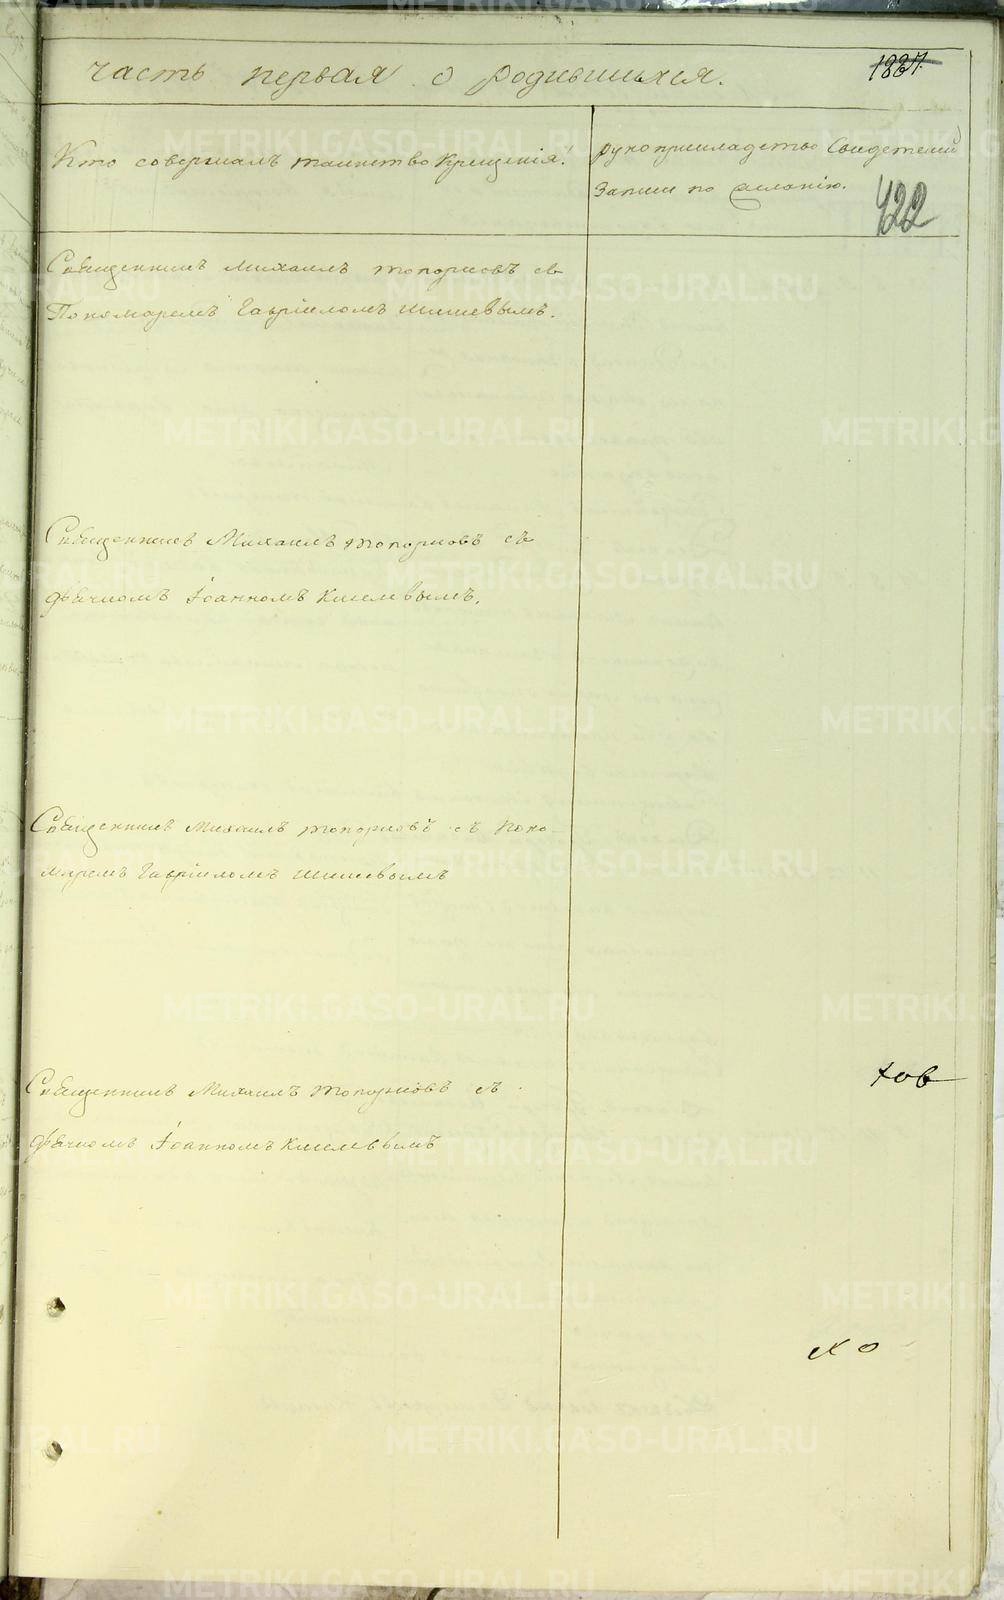 часть первая о родившихся.
1837.
Кто совершалъ таинство крещенія.
рукоприкладство свидетелей
записи по желанію.
422
Священникъ Михаилъ Топорковъ съ
Пономаремъ Гавріиломъ Шишевымъ.
Священникъ Михаилъ Топорковъ съ
дьячкомъ Іоанномъ Киселевымъ.
Священникъ Михаилъ Топорковъ съ Поно-
маремъ Гавріиломъ Шишевымъ
Священникъ Михаилъ Топорковъ съ
дьячкомъ Іоанномъ Киселевымъ
ков
METRIKI.GASO-URAL.RU